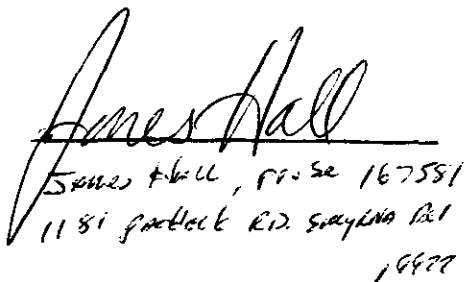 James Hall
James Hall, pro se 167581
1181 Paddock RD. Smyrna Del
19977